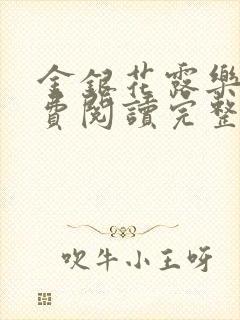 金銀花露樂
費閱讀完整
吹牛小王呀